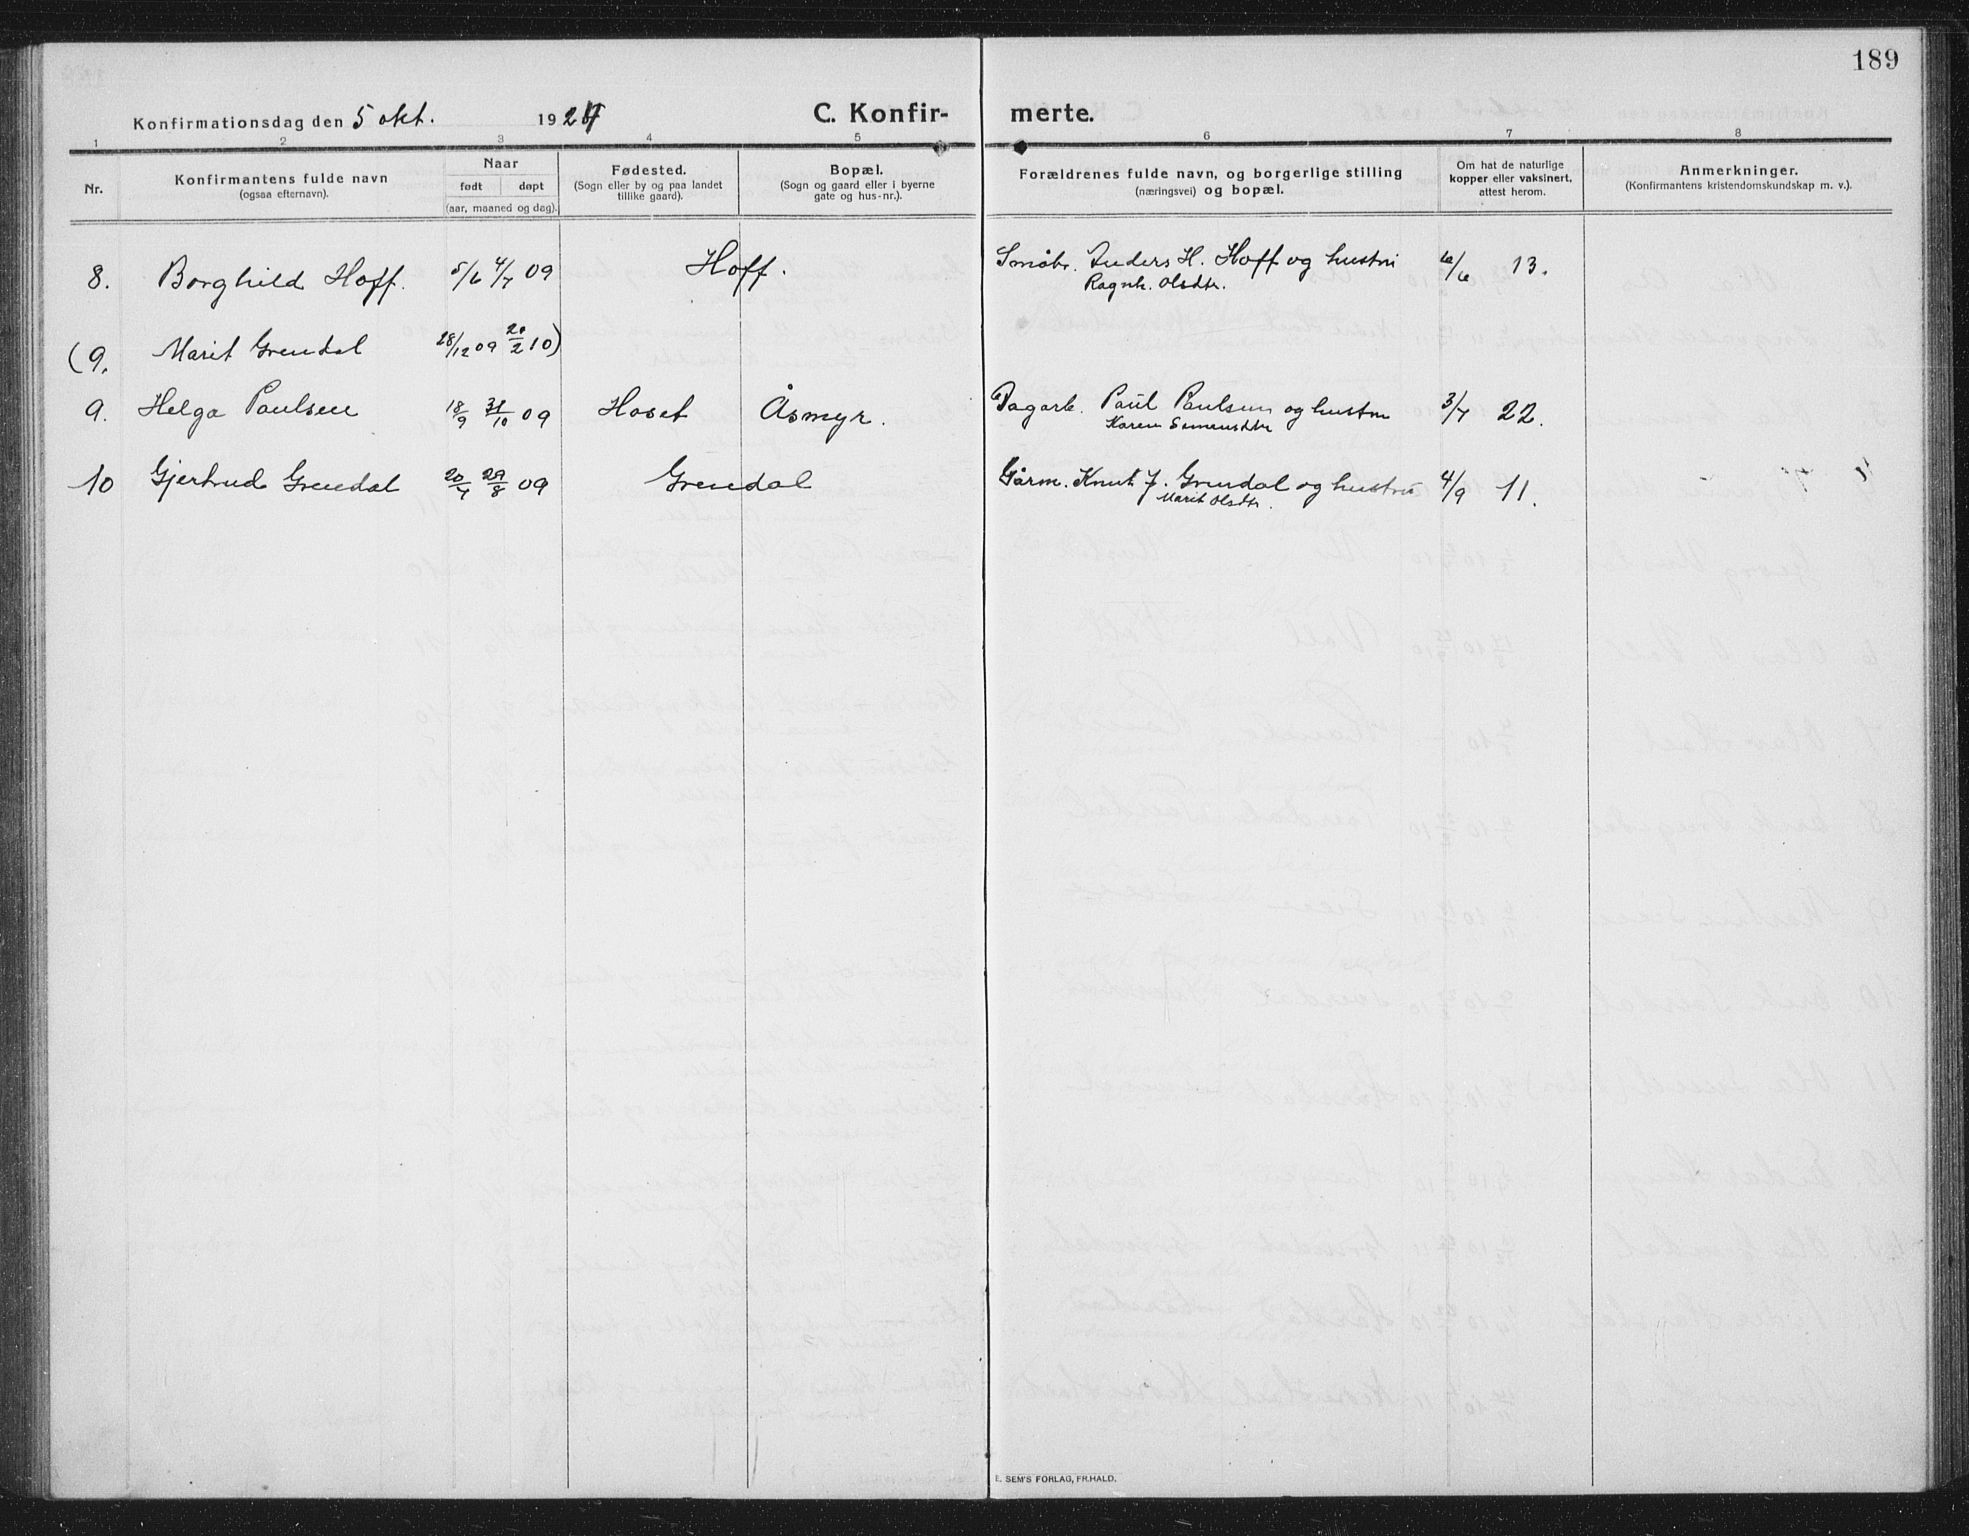 189
Konfirmationsdag den 5 okt. 1924
C. Konfir- merte.
1 2 3 4 5 6 7 8
Nr.
Konfirmantens fulde navn
(ogsaa efternavn).
Naar
født døpt
(aar, maaned og dag).
Fødested.
(Sogn eller by og paa landet
tillike gaard).
Bopæl.
(Sogn og gaard eller i byerne
gate og hus-nr.).
Forældrenes fulde navn, og borgerlige stilling
(næringsvei) og bopæl.
Om hat de naturlige
kopper eller vaksinert,
attest herom.
Anmerkninger.
(Konfirmantens kristendomskundskap m. v.).
8. Borghild Hoff. 5/6 4/7 09 Hoff. Småbr. Anders H. Hoff og hustru 6/6 13.
Ragnh. Olsdtr.
(9. Marit Grendal 28/12 09 20/2 10)
9. Helga Paulsen 18/9 31/10 09 Hoset Åsmyr. Dagarb. Paul Paulsen og hustru 3/7 22.
Karen Simensdtr
10 Gjertrud Grendal 20/7 29/8 09 Grendal Gårm. Knut J. Grendal og hustru 4/9 11.
Marit Olsdtr.
E. SEM'S FORLAG, FR.HALD.